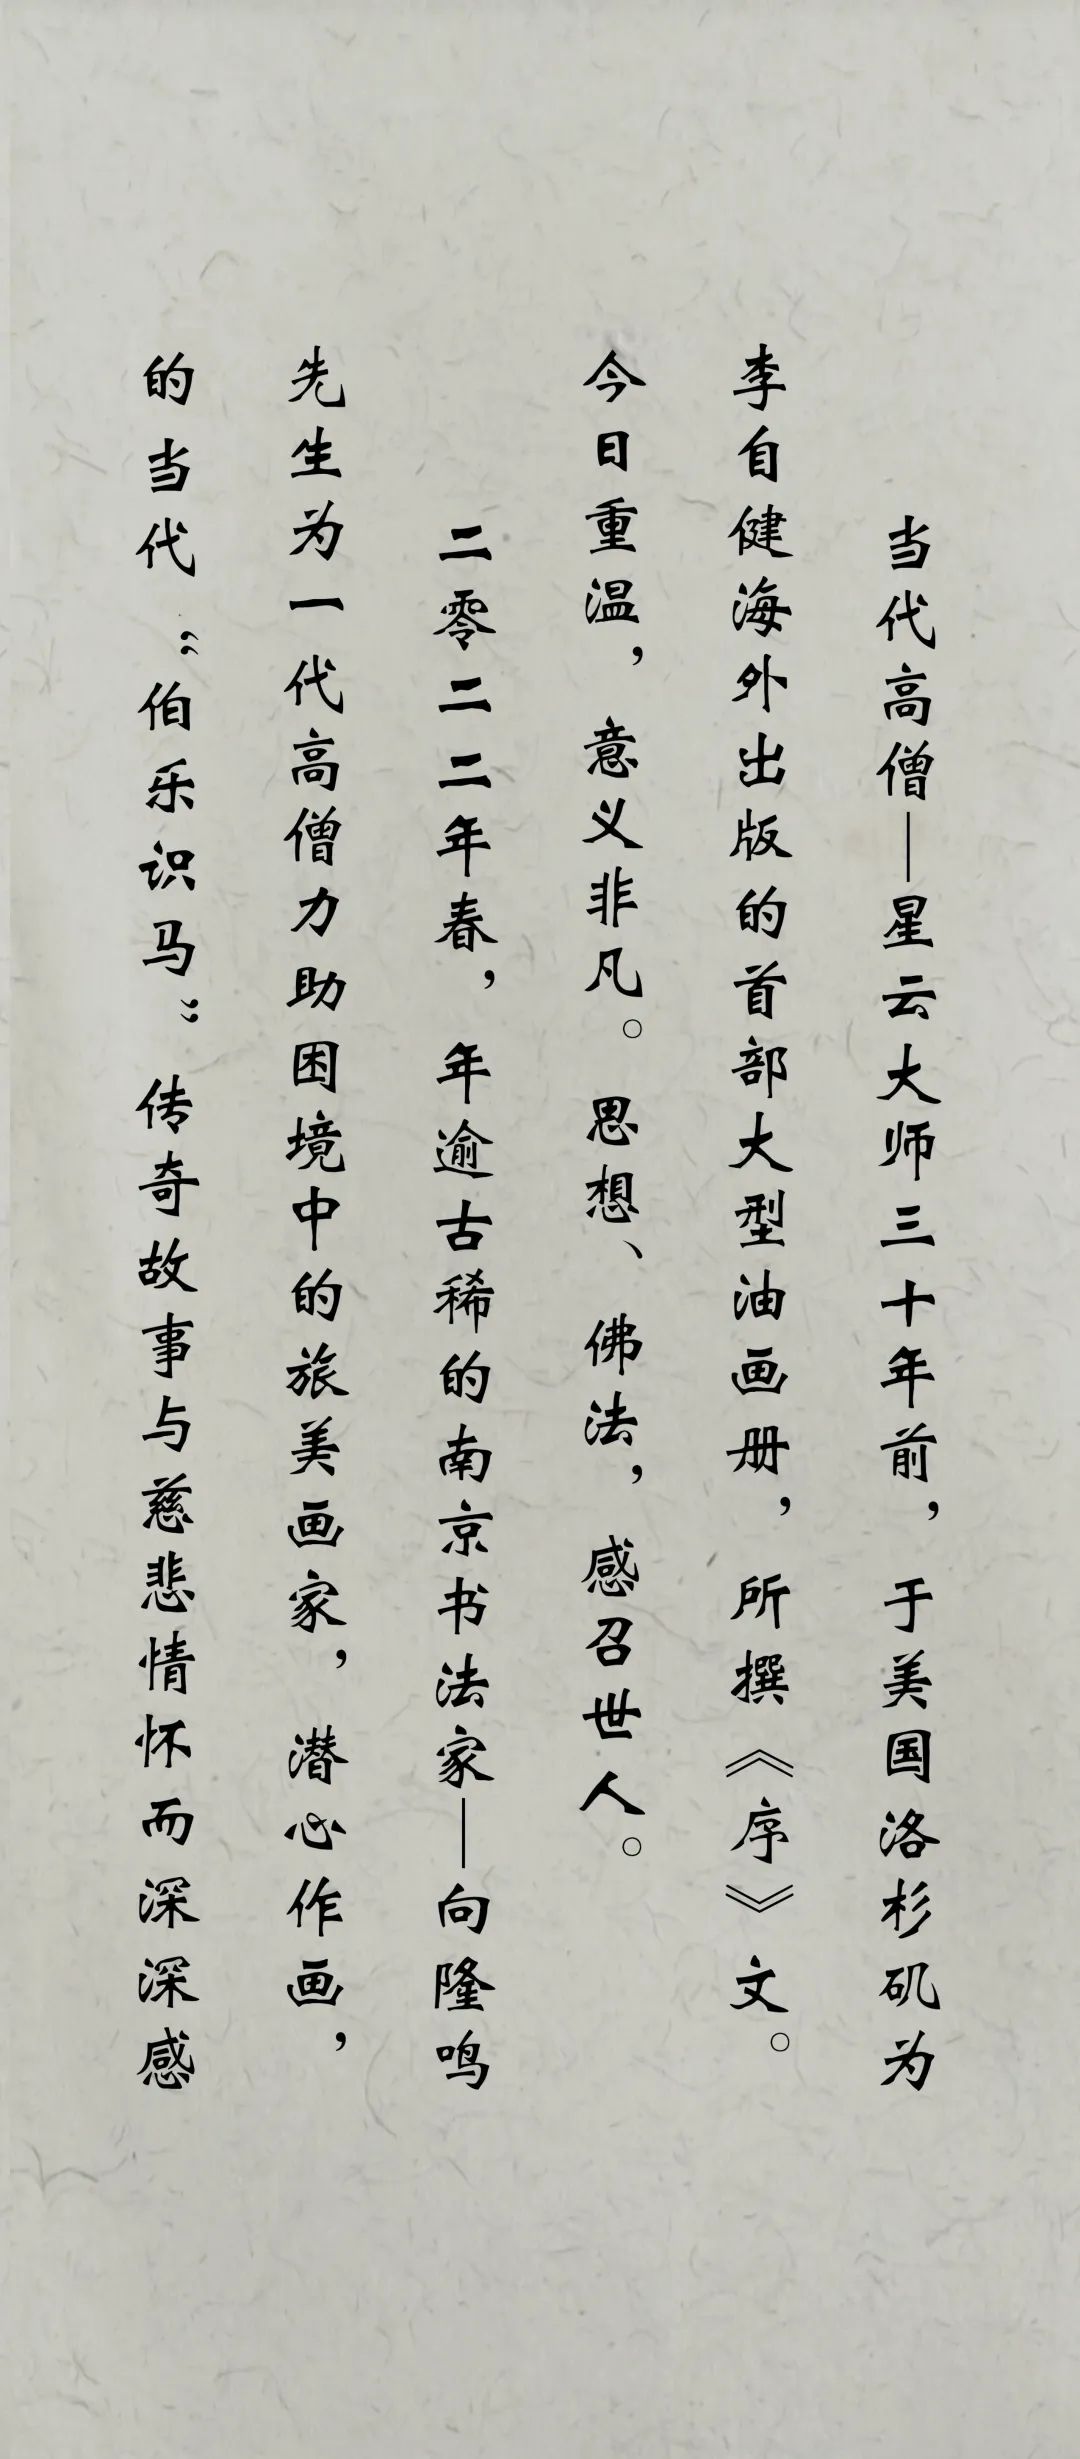 当代高僧—星云大师三十年前，于美国洛杉矶为
李自健海外出版的首部大型油画册，所撰《序》文。
今日重温，意义非凡。思想、佛法，感召世人。
二零二二年春，年逾古稀的南京书法家—向隆鸣
先生为一代高僧力助困境中的旅美画家，潜心作画，
的当代“伯乐识马”传奇故事与慈悲情怀而深深感